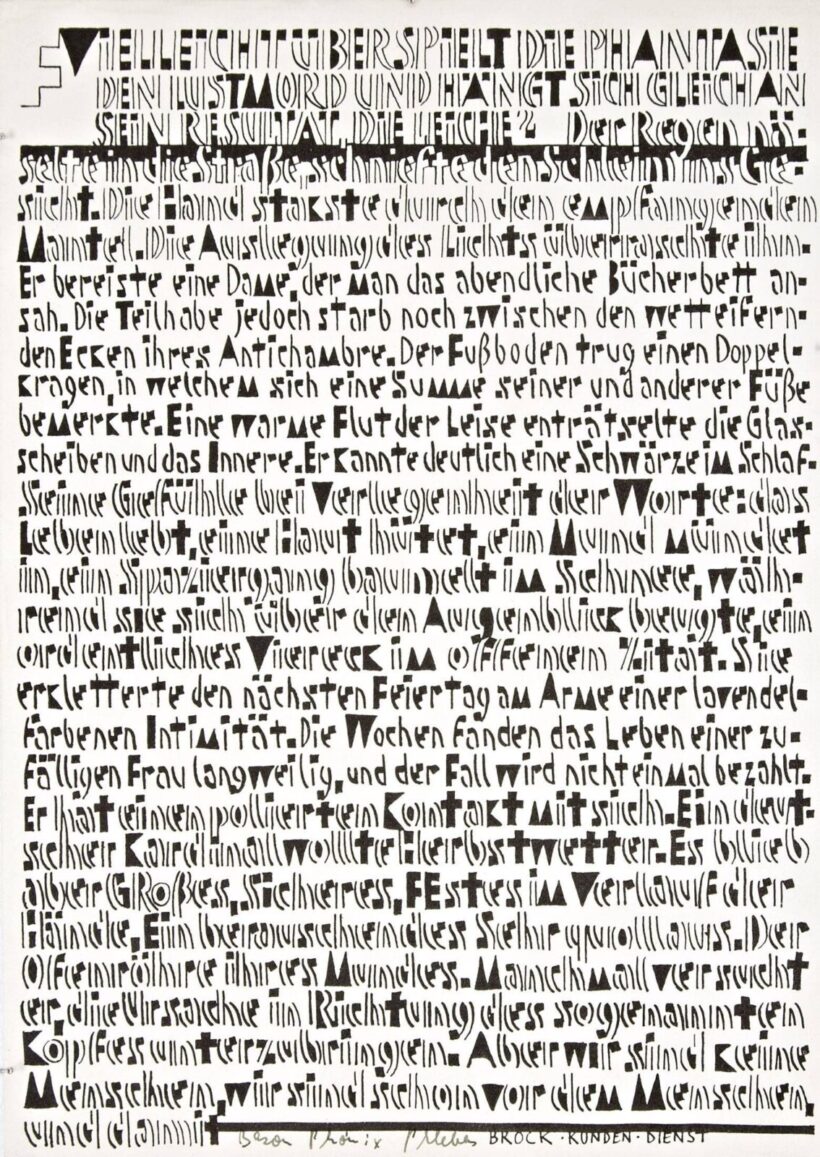 VIELLEICHT ÜBERSPIELT DIE PHANTASIE
DEN LUSTMORD UND HÄNGT SICH GLEICH AN
SEIN RESULTAT, DIE LEICHE? Der Regen nä-
selte in die Straße, schniefte den Schleim ins Ge-
sicht. Die Hand stakste durch den empfangenden
Mantel. Die Auslegung des Lichts überraschte ihn.
Er bereiste eine Dame, der man das abendliche Bücherbett an-
sah. Die Teilhabe jedoch starb noch zwischen den wetteifern-
den Ecken ihres Antichambre. Der Fußboden trug einen Doppel-
kragen, in welchem sich eine Summe seiner und anderer Füße
bemerkte. Eine warme Flut der Leise enträtselte die Glas-
scheiben und das Innere. Er kannte deutlich eine Schwärze im Schlaf.
Seine Gefühle bei Verlegenheit der Worte: das
Leben lebt, eine Haut hütet, ein Mund mündet
in, ein Spaziergang baumelt im Schnee, wäh-
rend sie sich über den Augenblick beugte, ein
ordentliches Viereck im offenen Zitat. Sie
erkletterte den nächsten Feiertag am Arme einer lavendel-
farbenen Intimität. Die Wochen fanden das Leben einer zu-
fälligen Frau langweilig, und der Fall wird nicht einmal bezahlt.
Er hat einen polierten Kontakt mit sich. Ein deut-
scher Kardinal wollte Herbstwetter. Es blieb
aber GRoßes, Sicheres, FEstes im Verlauf der
Hände, Ein berauschendes Sehr quoll aus. Der
Ofenröhre ihres Mundes. Manchmal versucht
er, die Ursache in Richtung des sogenannten
Kopfes unterzubringen. Aber wir sind keine
Menschen, wir sind schon vor dem Menschen,
und damit BROCK · KUNDEN · DIENST